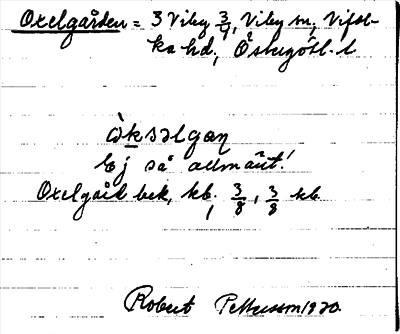 Oxelgården = 3 Viby 3/4, Viby sn, Vifol-
ka hd; Östergötl. l
òksəlgaɳ
Ej så allmänt!
Oxelgård bek, kb. 3/8, 3/8 kb
Robert Pettersson 1920.